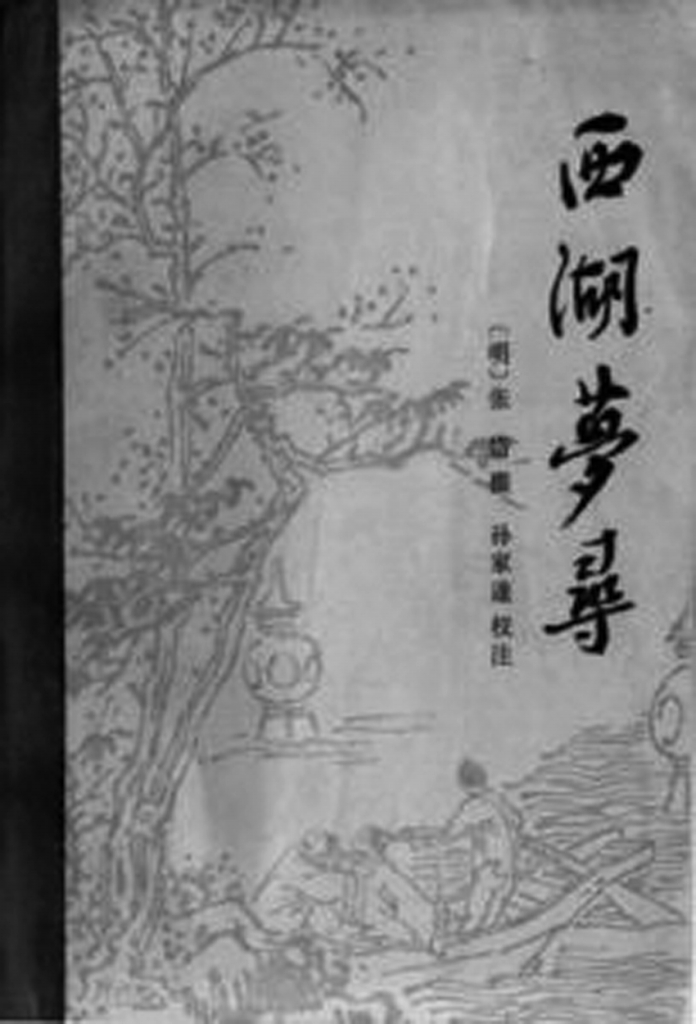 西湖夢尋
〔明〕张岱撰 孙家遂校注